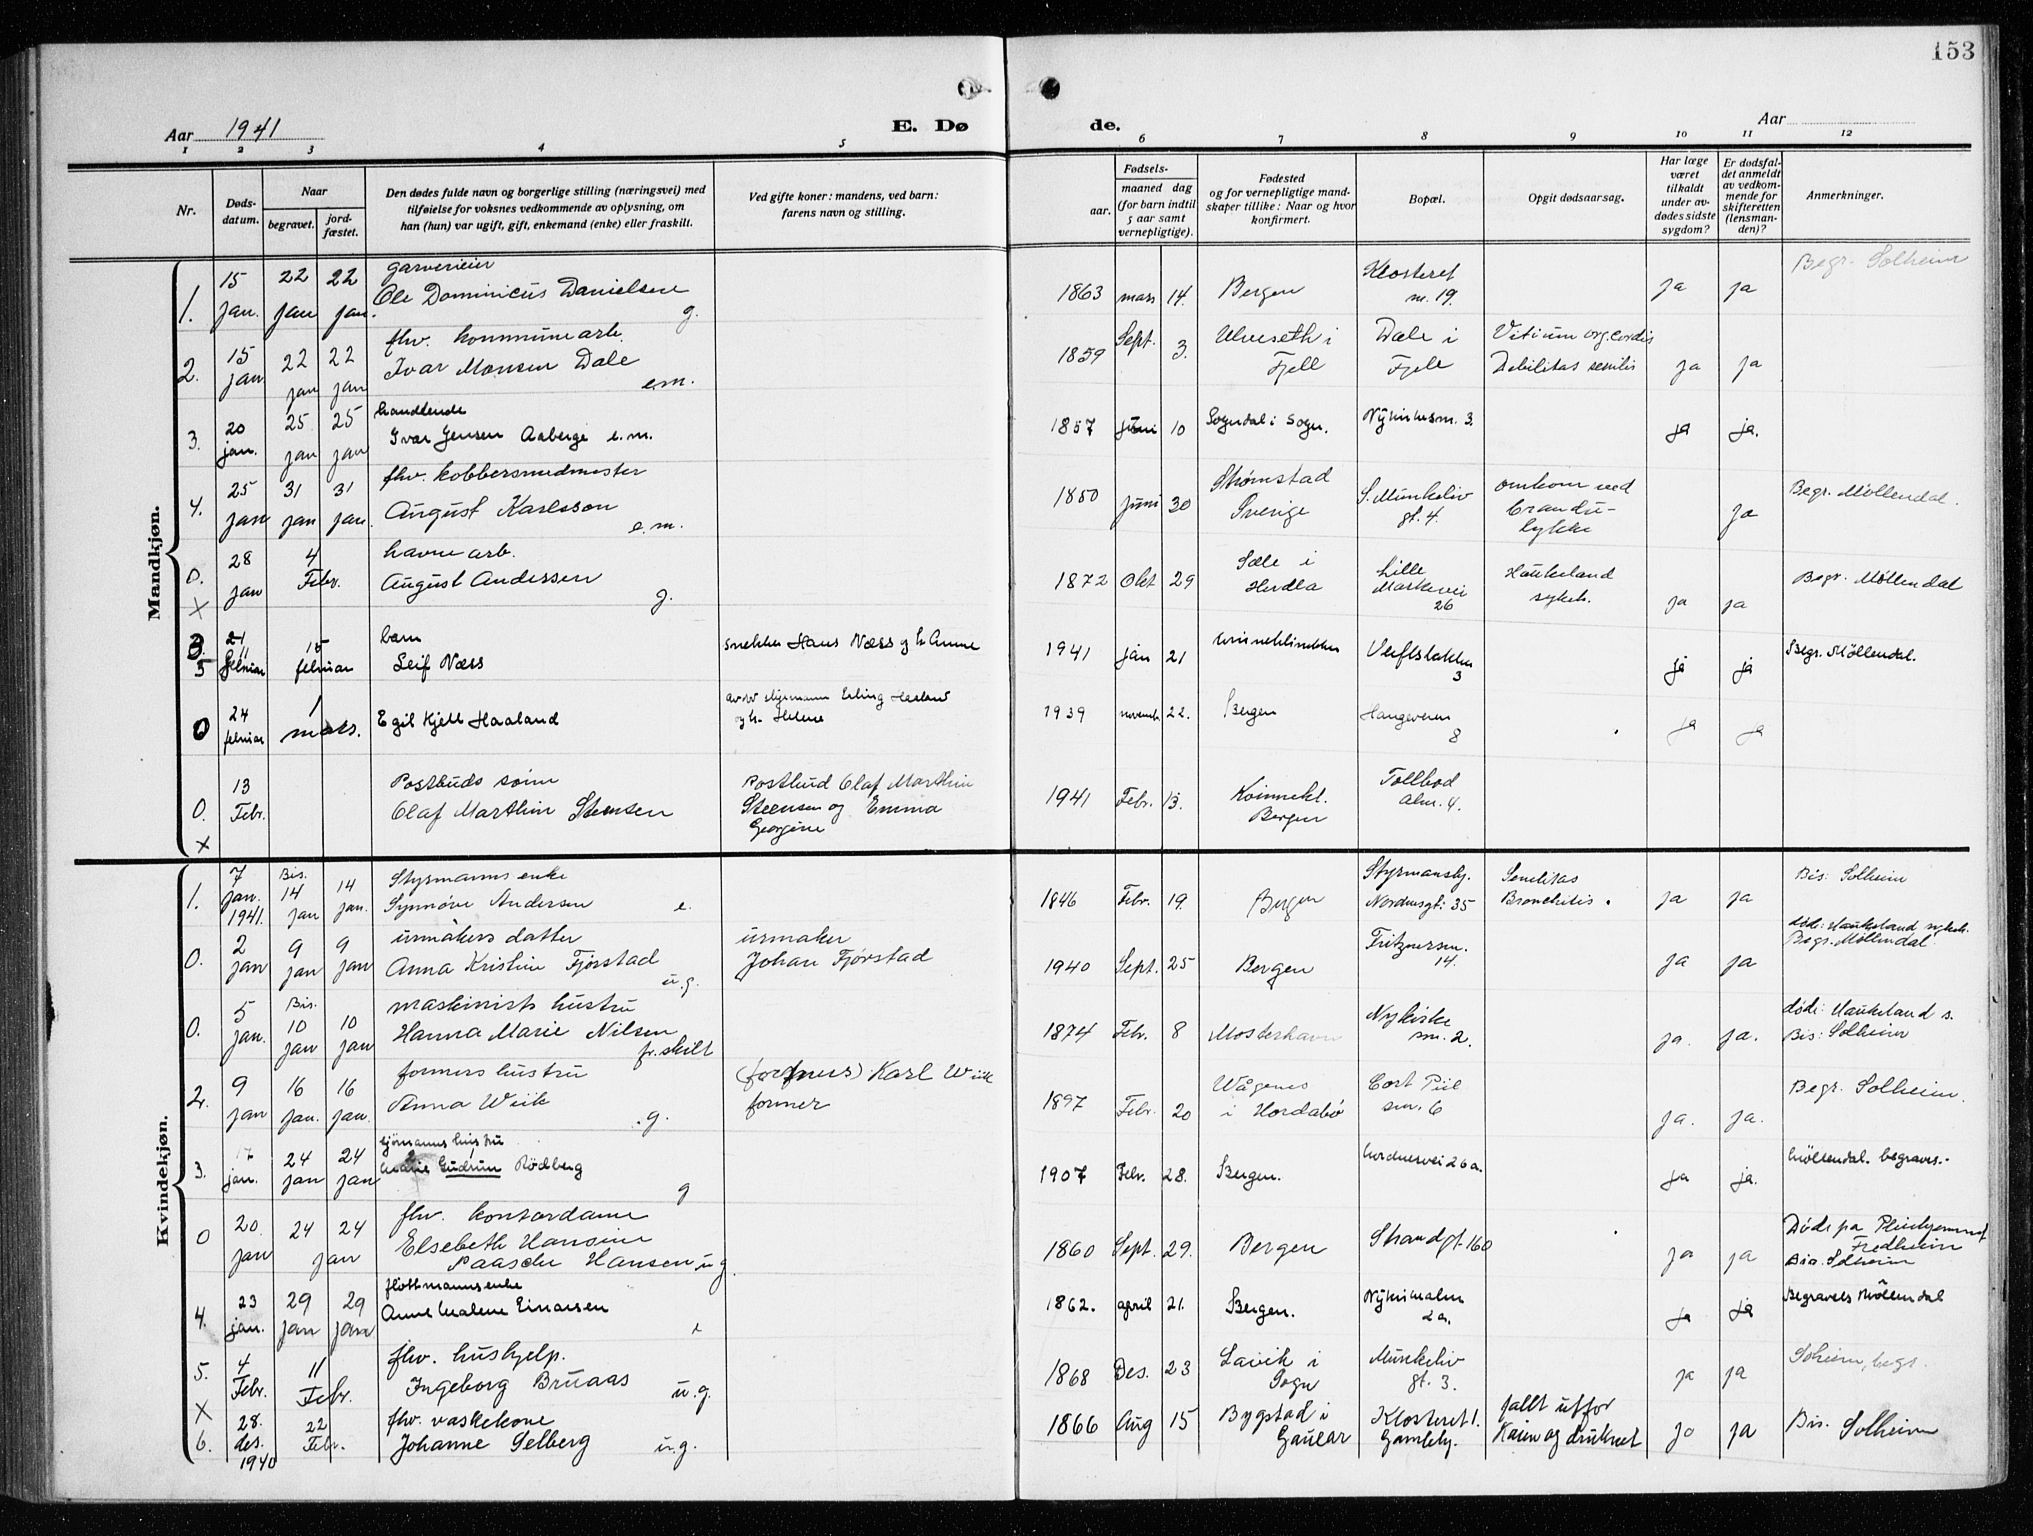 153
Aar 1941
E. Dø
de.
Aar
1 2 3 4 5 6 7 8 9 10 11 12
Nr.
Døds-
datum.
Naar
begravet.
jord-
fæstet.
Den dødes fulde navn og borgerlige stilling (næringsvei) med
tilføielse for voksnes vedkommende av oplysning, om
han (hun) var ugift, gift, enkemand (enke) eller fraskilt.
Ved gifte koner: mandens, ved barn:
farens navn og stilling.
Fødsels-
aar.
maaned dag
(for barn indtil
5 aar samt
vernepligtige).
Fødested
og for vernepligtige mand-
skaper tillike: Naar og hvor
konfirmert.
Bopæl.
Opgit dødsaarsag.
Har læge
været
tilkaldt
under av-
dødes sidste
sygdom?
Er dødsfal-
det anmeldt
av vedkom-
mende for
skifteretten
(lensman-
den)?
Anmerkninger.
Mandkjøn.
1. 15 jan. 22 jan 22 jan. garverieier
Ole Dominicus Danielsen g. 1863 mars 14. Bergen Klosteret nr. 19. ja ja Begr. Solheim
2. 15 jan 22 jan 22 jan fhv. kommunearb.
Ivar Monsen Dale e.m. 1859 Sept. 3. Ulveseth i Fjell Dale i Fjell Vitium org. cordis Debilitas senilis ja ja
3. 20 jan. 25 jan 25 jan handlende
Ivar Jensen Aaberge e.m. 1857 juni 10 Sogndal i Sogn. Nykirkesm. 3. ja ja.
4. 25 jan 31 jan 31 jan. fhv. kobbersmedmester
August Karlsson e.m. 1850 juni 30 Strømstad Sverige S. Munkeliv gt. 4. omkom ved brandu-lykke ja Begr. Møllendal.
0. X 28 jan 4 Febr. havnearb.
August Andersen g. 1872 Okt 29 Sæle i Herdla Lille Markevei 26 Haukeland sykeh. ja ja Begr. Møllendal
5 11 februar 15 februar barn
Leif Næss snekker Hans Næss og h. Anne 1941 jan 21 kvinneklinikken Verftsbakken 3 ja ja Begr. Møllendal.
0 24 februar 1 mars. Egil Kjell Haaland Erling Haaland
og h. Helene 1939 novemb. 22. Bergen Haugeveien 8 ja ja
0. x 13 Febr. Postbuds sønn
Olaf Marthin Steensen Postbud Olaf Marthin
Steensen og Emma
Georgine 1941 Febr. 13. Kvinnekl. Bergen Tollbod alm. 4.
Kvindekjøn.
1. 7 jan. 1941. Bis. 14 jan 14 jan. Styrmanns enke
Synnøve Andersen e. 1846 Febr. 19. Bergen Styrmansby. Nordnesgt. 35 Senilitas Bronchitis. ja ja Bis. Solheim
0. 2 jan 9 jan 9 jan urmakers datter
Anna Kristine Fjørstad u.g. urmaker
Johan Fjørstad 1940 Sept. 25 Bergen Fritznersm. 14. ja ja død: Haukeland sykeh.
Begr. Møllendal
0. 5 jan. Bis. 10 jan 10 jan maskinists hustru
Hanna Marie Nilsen fr.skilt 1874 Febr. 8 Mosterhavn Nykirke sm. 2. ja. ja. død: Haukeland s.
Bis: Solheim
2. 9 jan 16 jan. 16 jan. formers hustru
Anna Wiik .g. (formers) Karl Wiik
former 1897 Febr. 20 Vågenes i Hordabø Cort Piil sm. 6 ja. ja. Begr. Solheim.
3. 17 jan. 24 jan 24 jan sjømanns hustru
Marie Gudrun Rødberg g 1907 Febr. 28. Bergen. Nordnesvei 26 a. ja ja. Møllendal. begraves.-
0 20 jan 24 24 jan fhv. kontordame
Elsebeth Hansine
Paasche Hansen u.g. 1860 Sept. 29. Bergen Strandgt. 160 ja ja Døde på Pleiehjemmet
Fredheim
Bis. Solheim
4. 23 jan. 29 jan 29 jan flottmanns enke
Anne Malene Einarsen e 1862. april 21. Bergen. Nykirkealm 2a. ja ja Begraves Møllendal
5. X 4 Febr. 11 Febr. fhv. hushjelp.
Ingeborg Bruaas u.g. 1868 Des. 23 Lavik i Sogn Munkeliv gt. 3. ja ja Solheim, begr.
6. 28. des. 1940 22 Febr. fhv. vaskekone
Johanne Selberg u.g. 1866 Aug 15 Bygstad i Gaular Klosteret 1. Gamleby. falt utfor Kaien og druknet ja ja Bis. Solheim